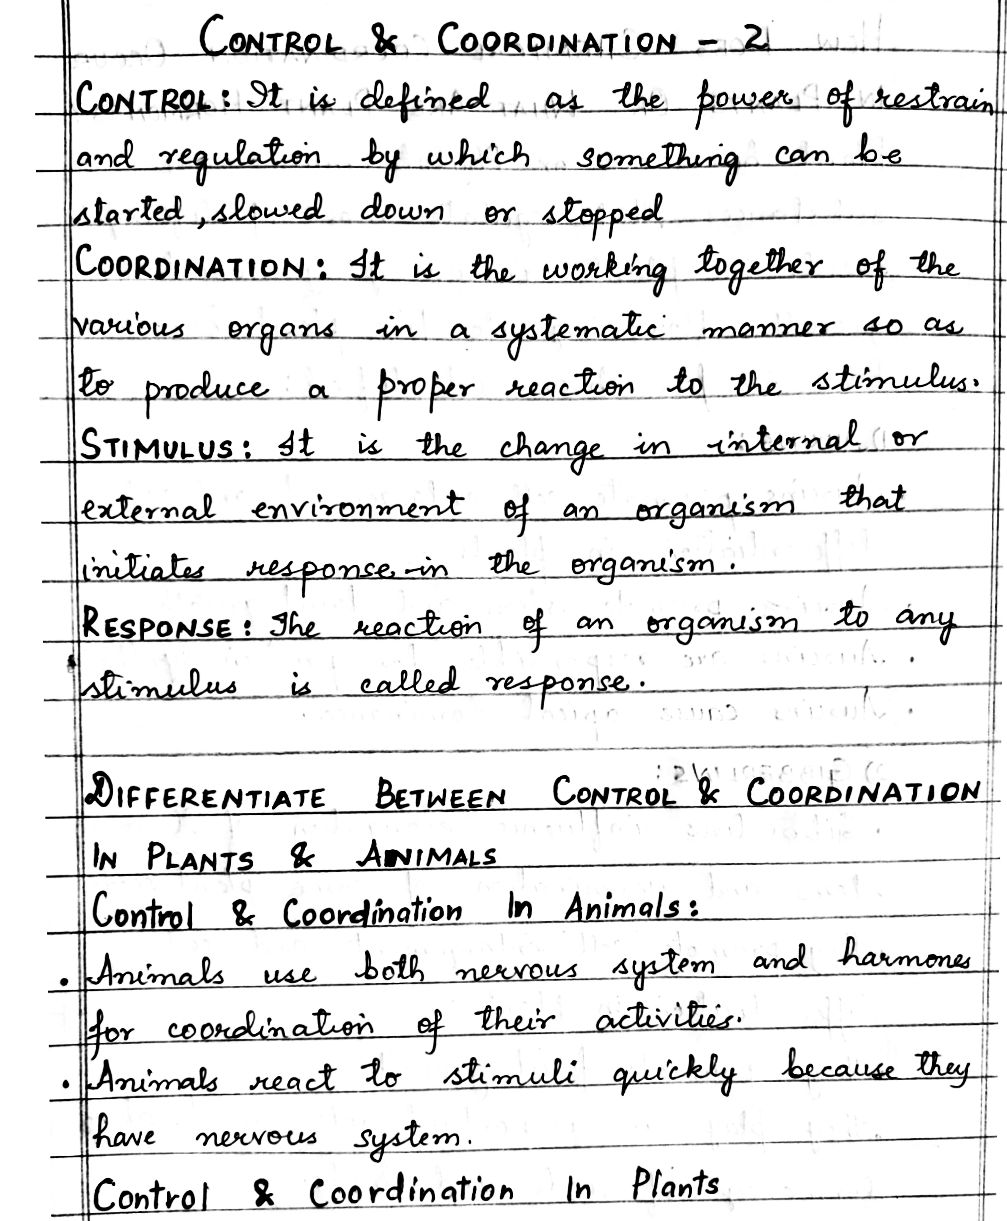 CONTROL & COORDINATION - 2
CONTROL: It is defined as the power of restrain
and regulation by which something can be
started, slowed down or stopped
COORDINATION: It is the working together of the
various organs in a systematic manner so as
to produce a proper reaction to the stimulus.
STIMULUS: It is the change in internal or
external environment of an organism that
initiates response in the organism.
RESPONSE: The reaction of an organism to any
stimulus is called response.
DIFFERENTIATE BETWEEN CONTROL & COORDINATION
IN PLANTS & ANIMALS
Control & Coordination In Animals:
. Animals use both nervous system and harmones
for coordination of their activities.
. Animals react to stimuli quickly because they
have nervous system.
Control & Coordination In Plants